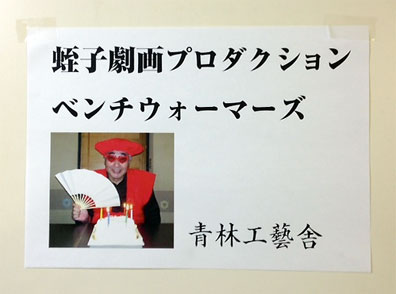 蛭子劇画プロダクション
ベンチウォーマーズ
青林工藝舎